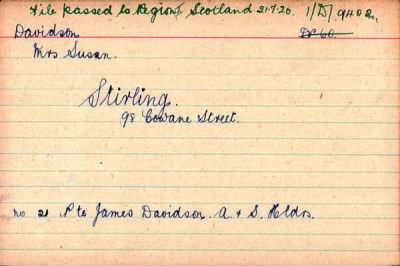 File passed to Region, Scotland 21.7.20. 1/D/9402.
Davidson
Mrs Susan.
Stirling.
98 Cowane Street.
no 21 Pte James Davidson. A & S. Hldrs.